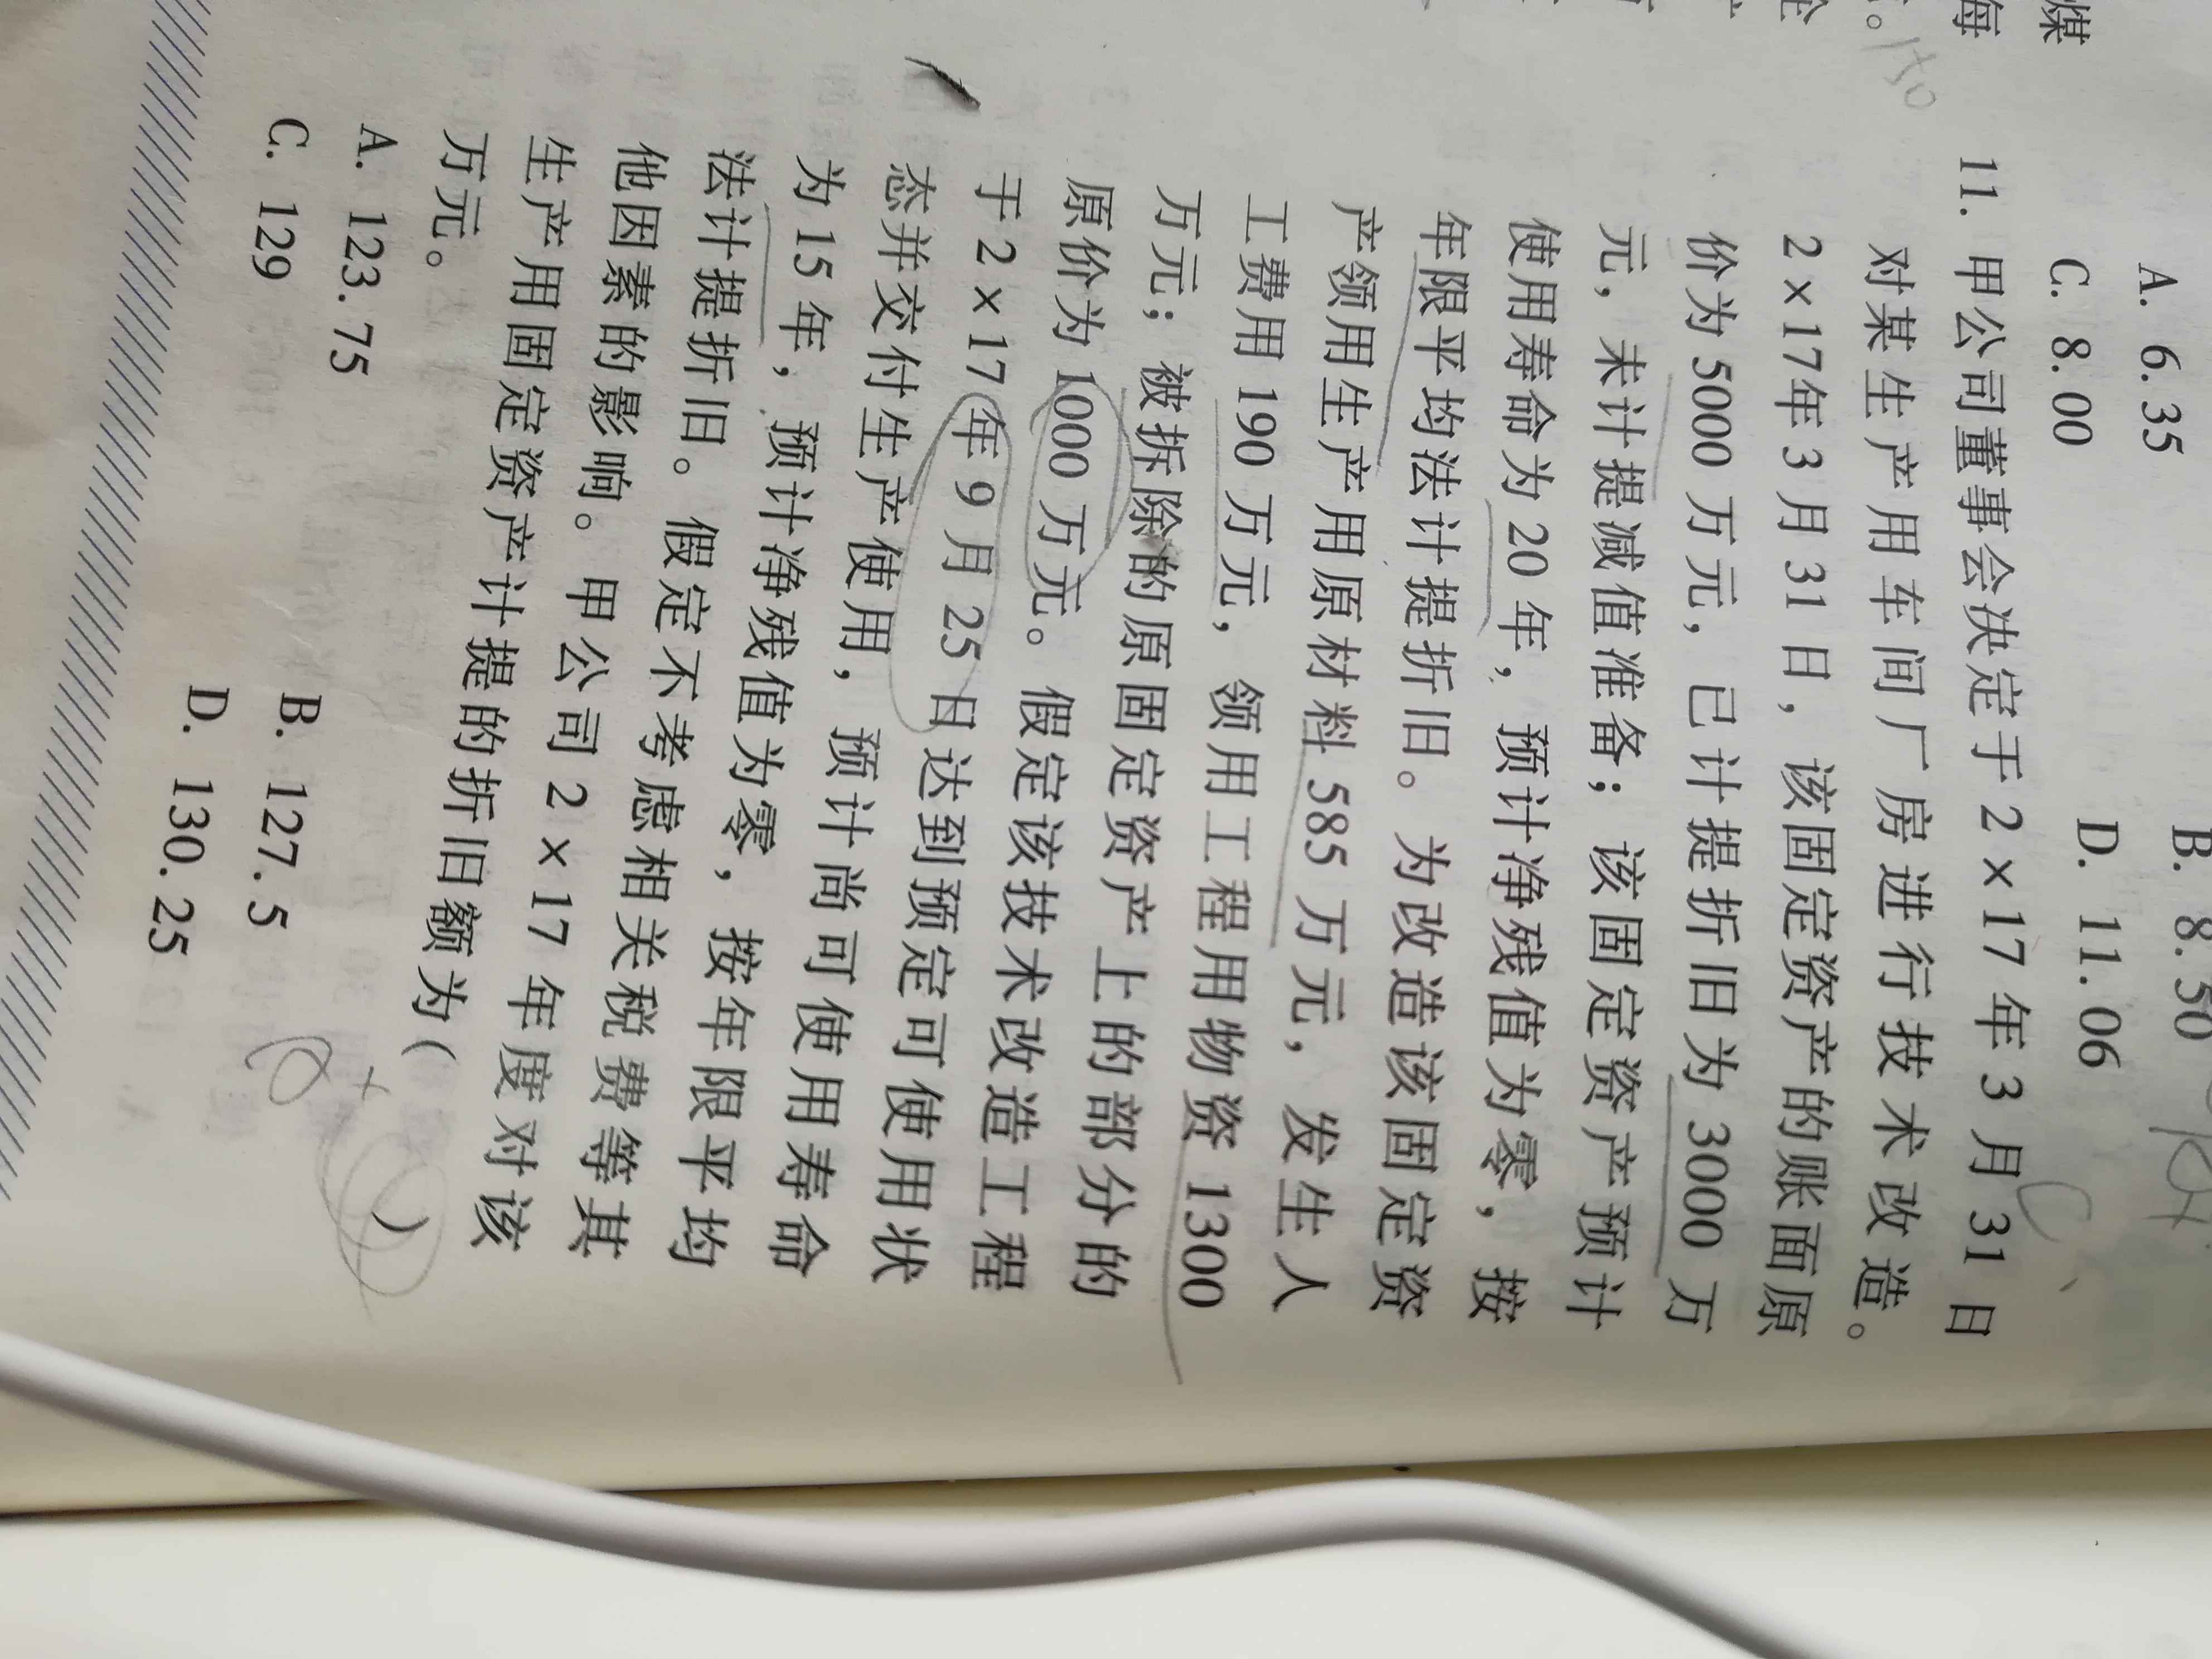 煤
海
。150
A. 6.35
B. 8.50
C. 8.00
D. 11.06
11. 甲公司董事会决定于 2×17 年 3 月 31 日
对某生产用车间厂房进行技术改造。
2×17年 3 月 31 日，该固定资产的账面原
价为 5000 万元，已计提折旧为 3000 万
元，未计提减值准备；该固定资产预计
使用寿命为 20 年，预计净残值为零，按
年限平均法计提折旧。为改造该固定资
产领用生产用原材料 585 万元，发生人
工费用 190 万元，领用工程用物资 1300
万元；被拆除的原固定资产上的部分的
原价为 1000 万元。假定该技术改造工程
于 2×17 年 9 月 25 日达到预定可使用状
态并交付生产使用，预计尚可使用寿命
为 15 年，预计净残值为零，按年限平均
法计提折旧。假定不考虑相关税费等其
他因素的影响。甲公司 2×17 年度对该
生产用固定资产计提的折旧额为（ ）
万元。
A. 123.75
B. 127.5
C. 129
D. 130.25